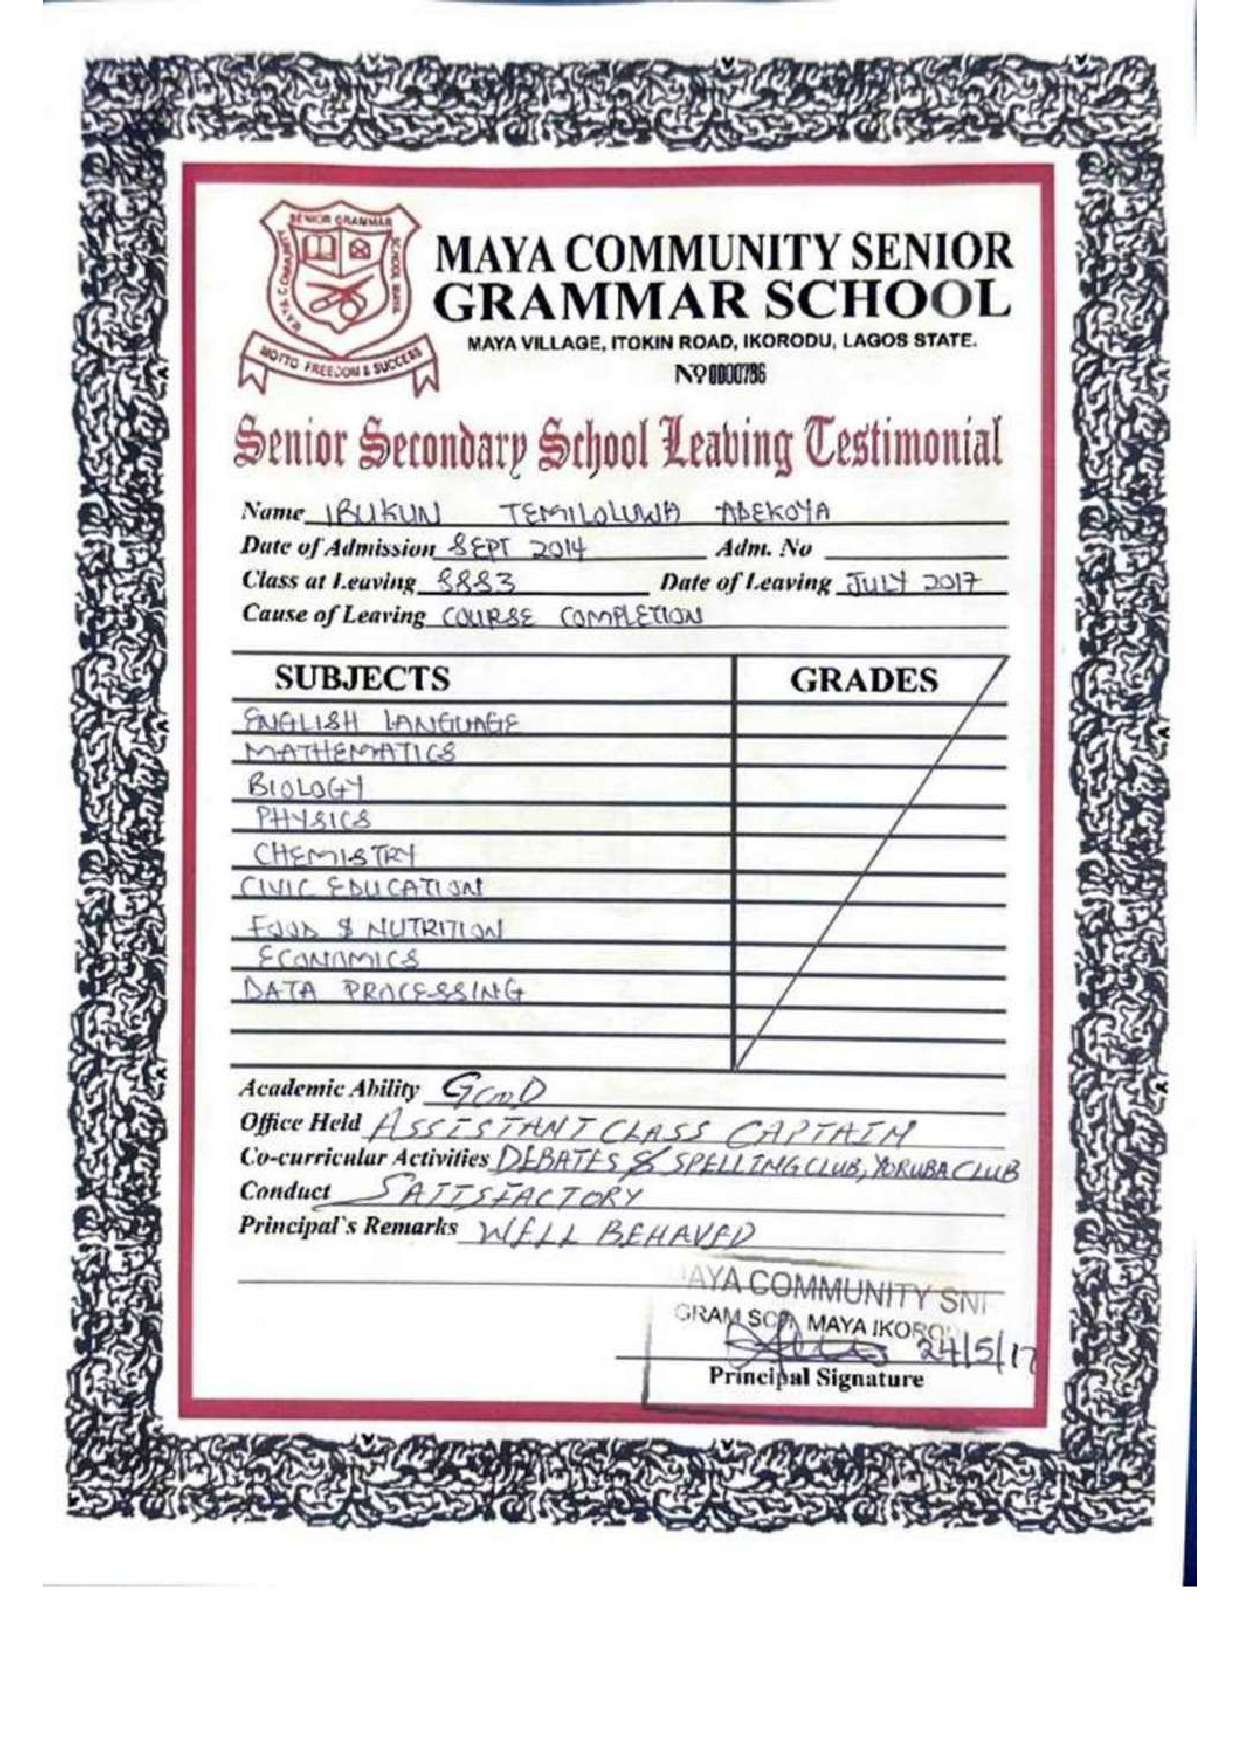 SENIOR GRAMMAR
MAYA COMMUNITY
SCHOOL MAYA
MOTTO FREEDOM & SUCCESS
MAYA COMMUNITY SENIOR
GRAMMAR SCHOOL
MAYA VILLAGE, ITOKIN ROAD, IKORODU, LAGOS STATE.
Nº 0000786
Senior Secondary School Leaving Testimonial
Name IBUKUN TEMILOLUWA ADEKOYA
Date of Admission SEPT 2014 Adm. No
Class at Leaving SSS3 Date of Leaving JULY 2017
Cause of Leaving COURSE COMPLETION
SUBJECTS GRADES
ENGLISH LANGUAGE
MATHEMATICS
BIOLOGY
PHYSICS
CHEMISTRY
CIVIC EDUCATION
FOOD & NUTRITION
ECONOMICS
DATA PROCESSING
Academic Ability GOOD
Office Held ASSISTANT CLASS CAPTAIN
Co-curricular Activities DEBATES & SPELLING CLUB, YORUBA CLUB
Conduct SATISFACTORY
Principal's Remarks WELL BEHAVED
MAYA COMMUNITY SNR
GRAM SCH MAYA IKOROD
24/5/17
Principal Signature